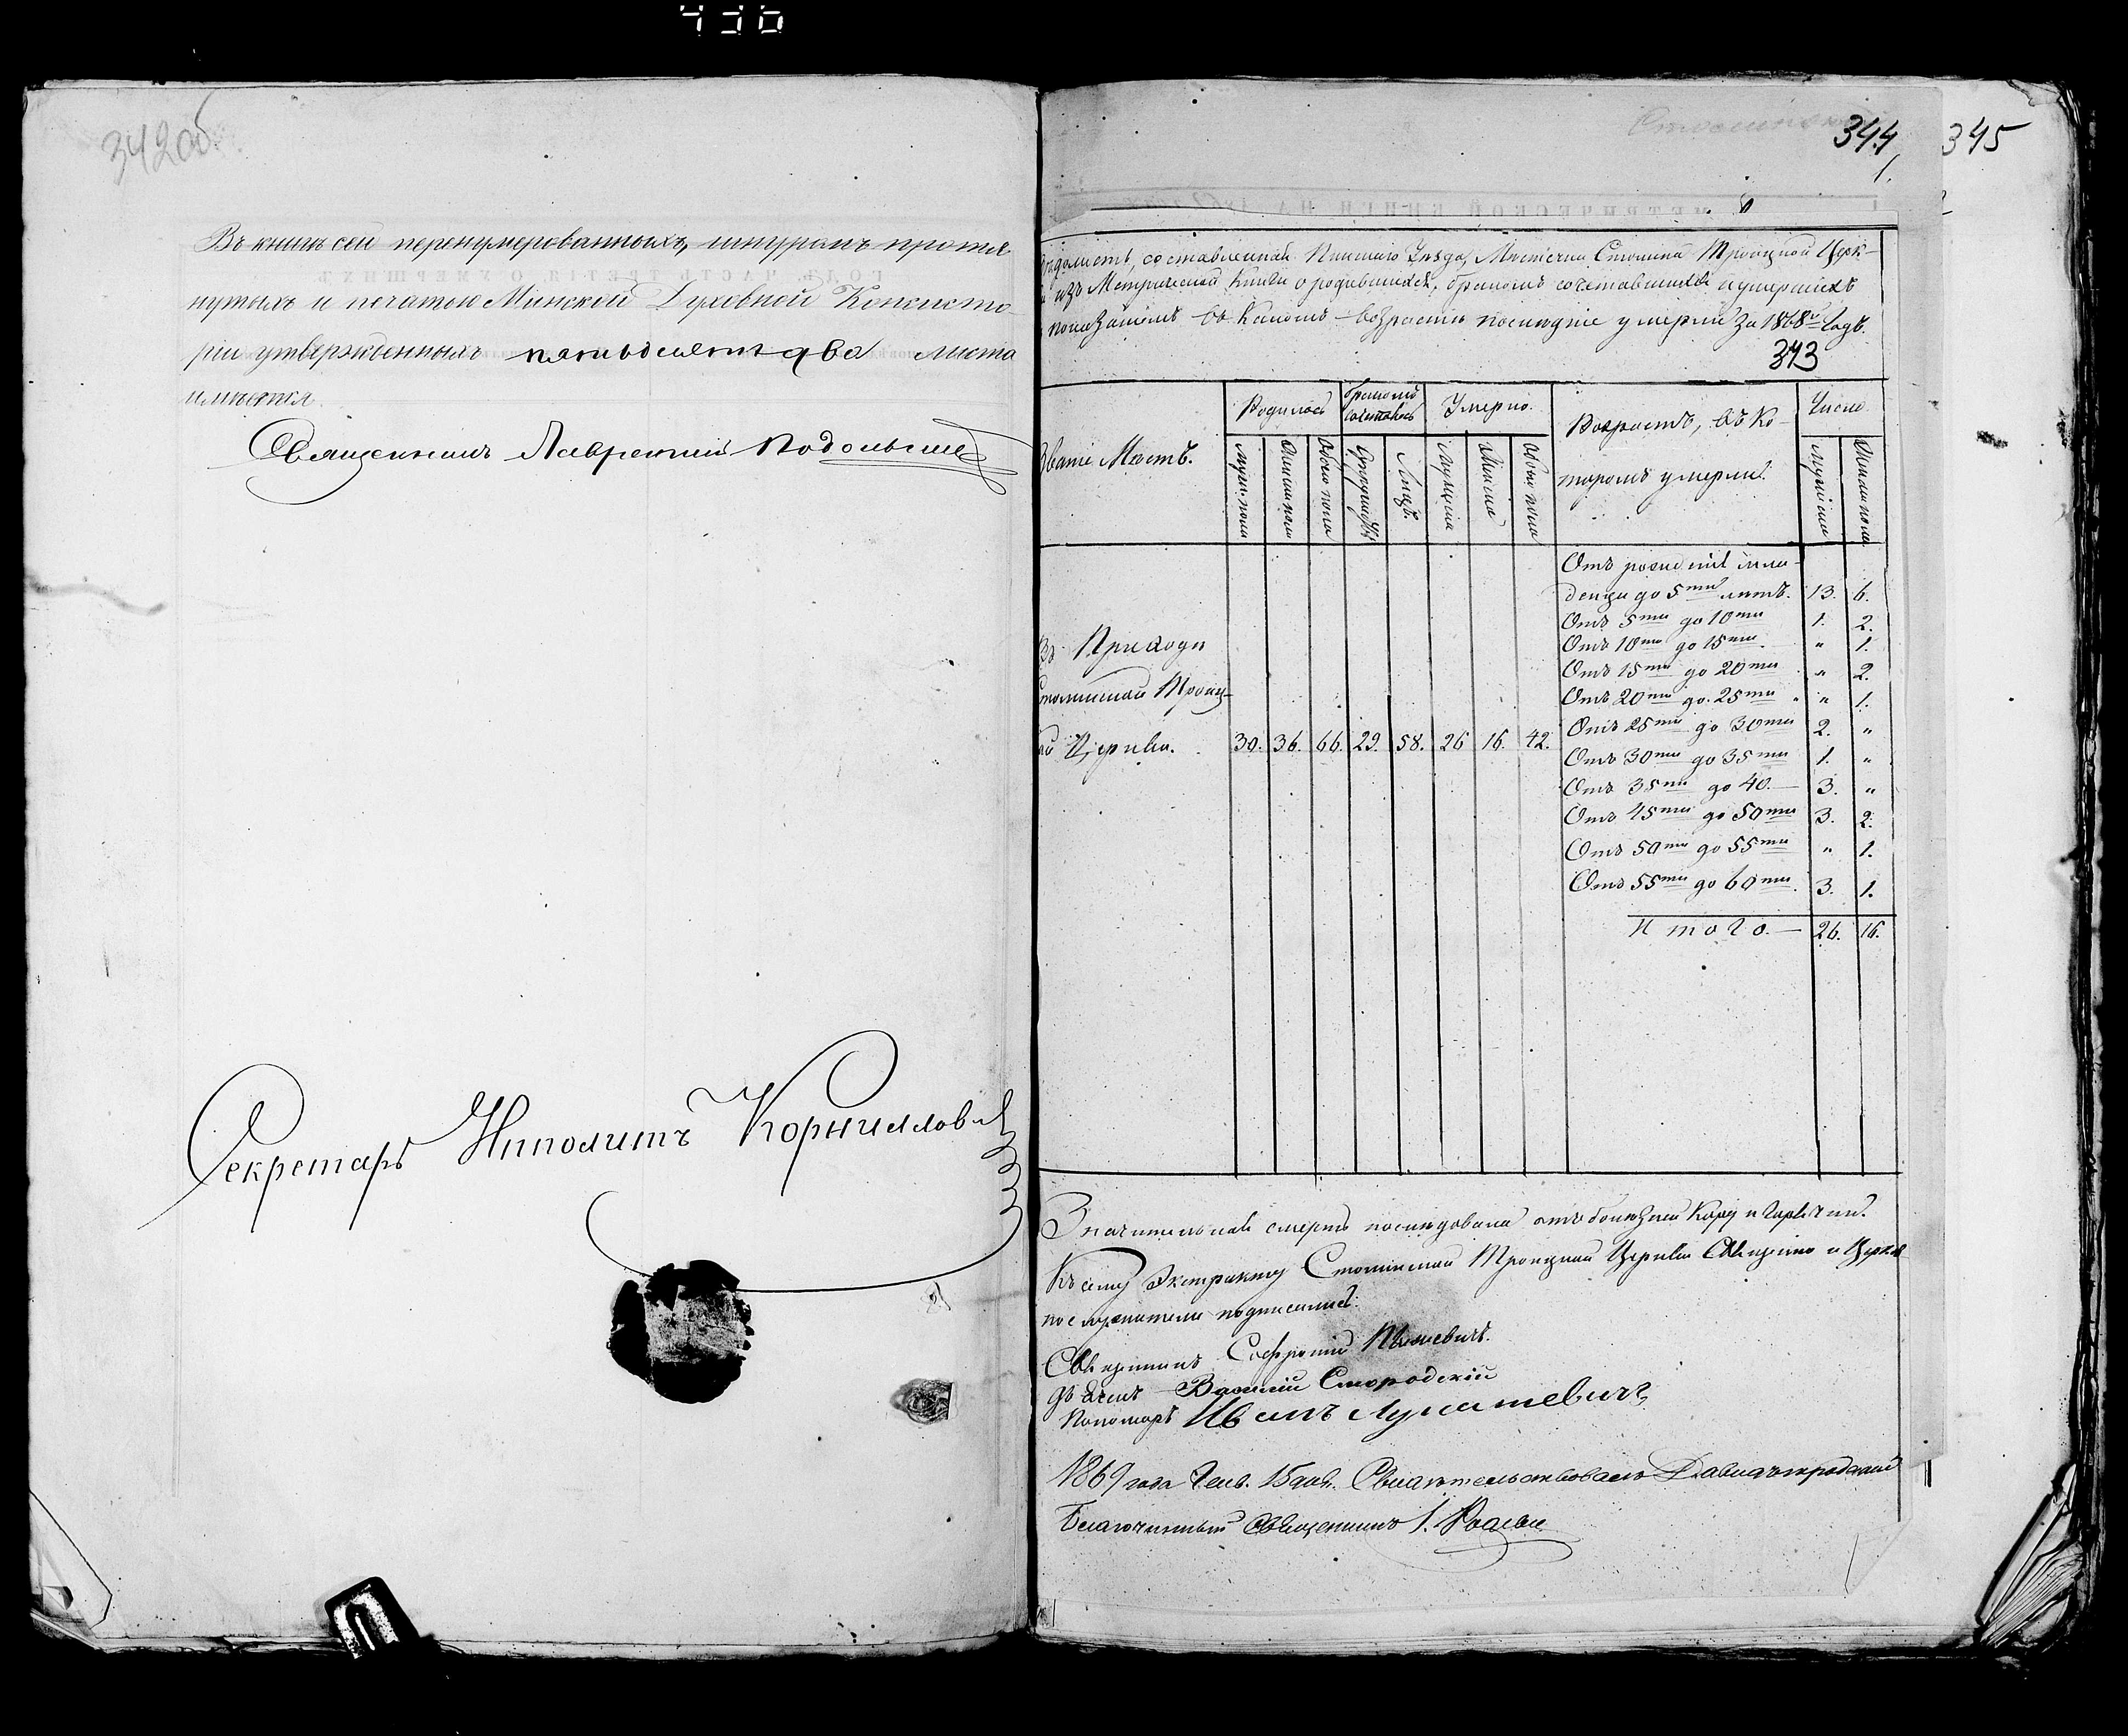 342об
Въ книгѣ сей перенумерованныхъ, шнуромъ протя
нутыхъ и печатью Минской Духовной Консисто-
ріи утвержденныхъ пятьдесятъ два листа
имѣется.
Священникъ Лаврентий
Секретарь Иполитъ Корниллов
344 345
1.
составленная Пинскаго Уѣзда, Мѣстечка Столина Троицкой Церк-
изъ Метрической Книги о родившихся, бракомъ сочетавшихся и умершихъ
въ какомъ возрастѣ послѣдніе умерли за 1868й Годъ.
343
Званіе Мѣстъ. Родилось Бракомъ сочеталось Умерло. Возрастъ, въ ко- Число
торомъ умерли.
мужск. пола женск. пола обоего пола супружествъ лицъ. мужска женска обоего пола мужска женска пола
Отъ рожденія мла-
денцы до 5ти лѣтъ. 13. 6.
Отъ 5ти до 10ти 1. 2.
Отъ 10ти до 15ти " 1.
Отъ 15ти до 20ти " 2.
Отъ 20ти до 25ти " 1.
Отъ 25ти до 30ти 2. "
Отъ 30ти до 35ти 1. "
Отъ 35ти до 40.— 3. "
Отъ 45ти до 50ти 3. 2.
Отъ 50ти до 55ти " 1.
Отъ 55ти до 60ти 3. 1.
Въ Приходѣ
Столинской Троиц-
кой Церкви. 30. 36. 66. 29. 58. 26 16. 42.
Итого.— 26. 16.
Значительная смерть послѣдовала отъ болѣзни Кору и Горячки.
Къ сему Экстракту Столинской Троицкой Церкви Священно и Церков
нослужители подписались:
Священникъ Софроній
Дьячекъ Василій Смородскій
Пономарь Иванъ Лукашевичъ
1869 года Генв. 15 дня. Свидѣтельствовалъ Давидъгородскій
Благочинный Священникъ І.